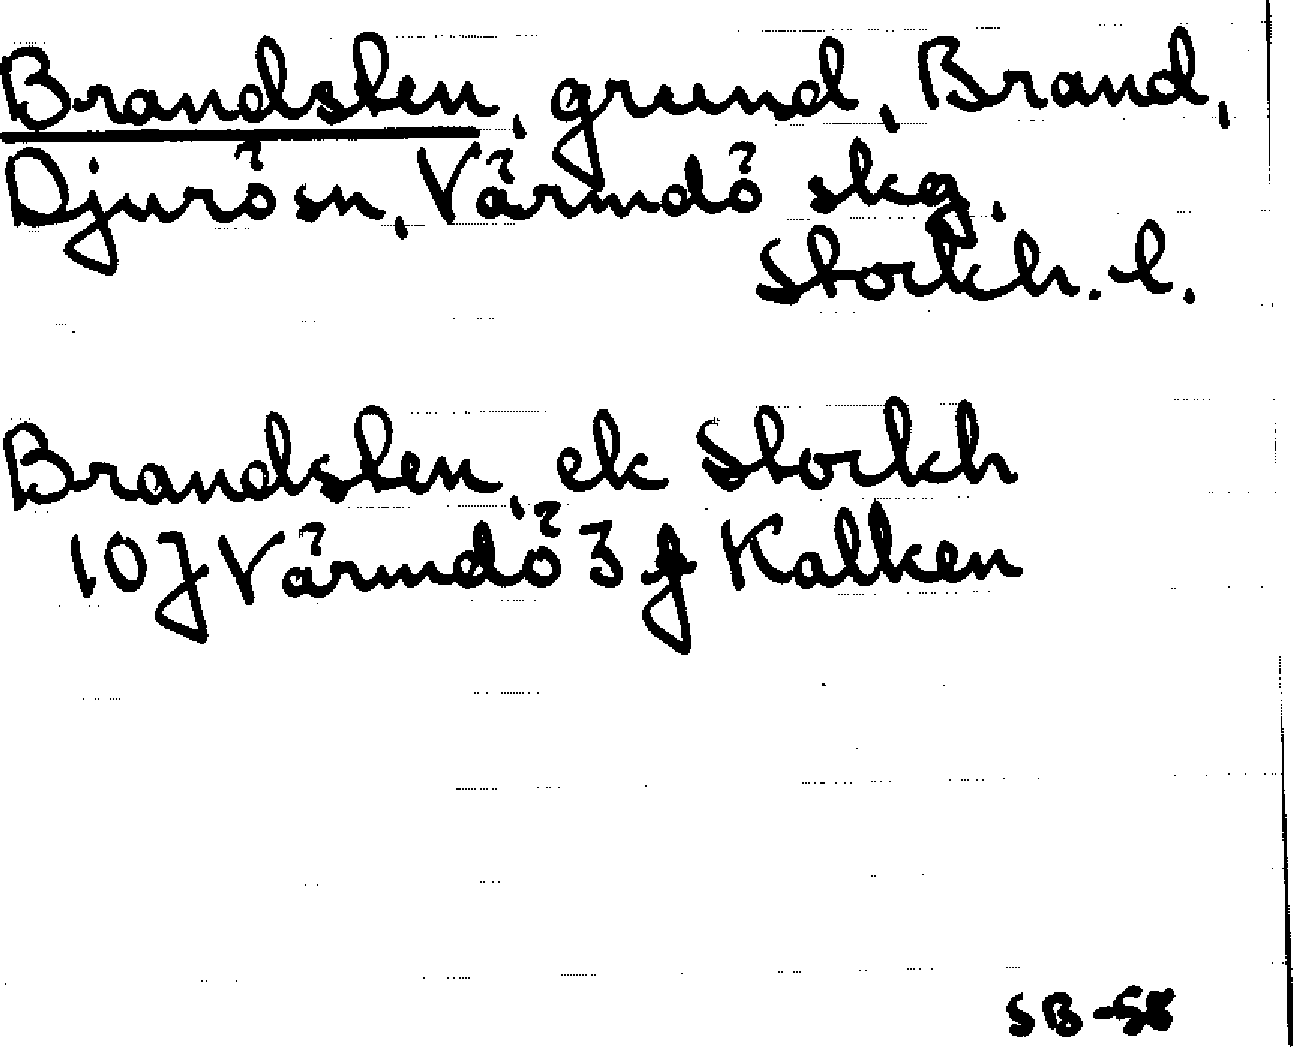 Brandsten, grund, Brand,
Djurö sn, Värmdö skg.
Stockh. l.
Brandsten, ek Stockh
10J Värmdö 3 f Kalken
SB-58